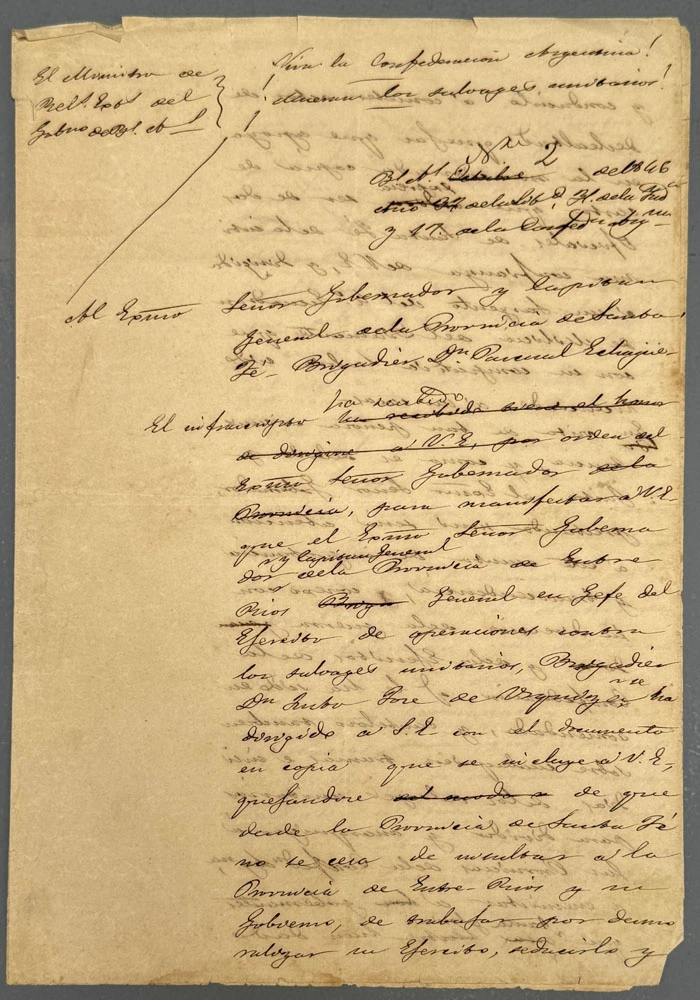 ¡Viva la Confederacion Argentina!
¡Mueran los salvages unitarios!
El Ministro de
Rel.s Ext.s del
Gob.no de Bs. As.
Bs. As. Octubre 2 de 1846
año 37 de la Lib.d, 31 de la Ind.a
y 17 de la Conf.n Arg.na
Al Exmo Señor Gobernador y Capitan
Jeneral de la Provincia de Santa
Fé - Brigadier Dn Pascual Echagüe -
ha recibido
El infrascripto ha recibido el honor
de dirigirse a V. E, por orden del
Exmo Señor Gobernador de la
Provincia, para manifestar a V. E-
que el Exmo Señor Goberna
r y Capitan Jeneral
dor de la Provincia de Entre
Rios Jeneral en Gefe del
Ejercito de operaciones contra
los salvages unitarios, Brigadier
Dn Justo José de Urquiza, se ha
dirigido a S. E- con el documento
en copia que se incluye a V. E,
quejandose del modo de que
desde la Provincia de Santa Fé
no se cesa de insultar a la
Provincia de Entre-Rios y su
Gobierno, de trabajar por desmo
ralizar su Ejercito, seducirlo y